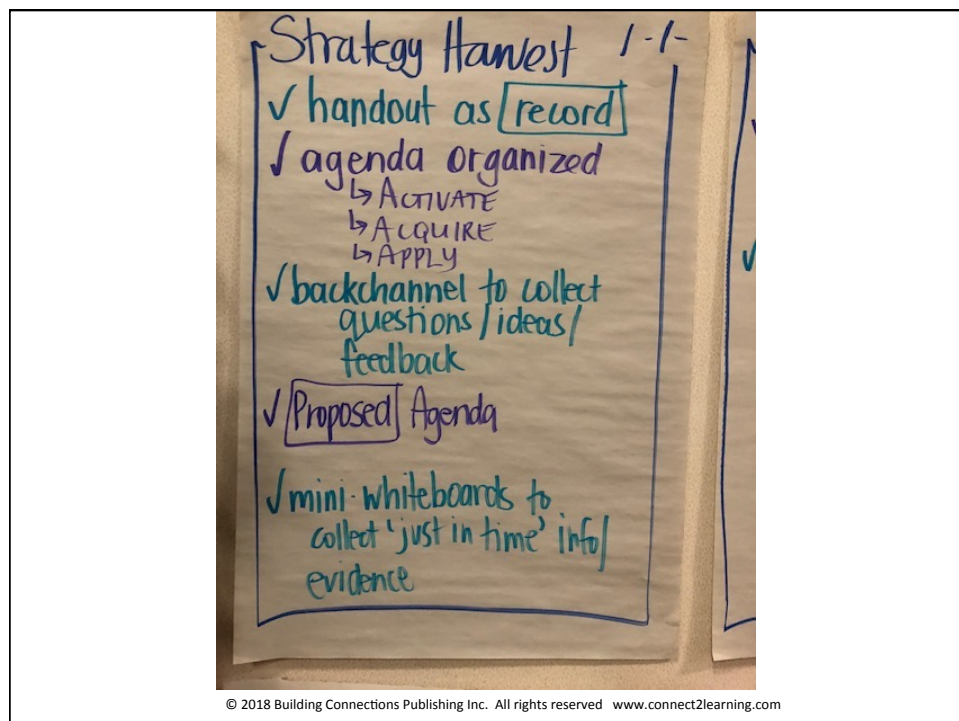 Strategy Harvest 1-1-
✓ handout as record
✓ agenda organized
↳ ACTIVATE
↳ ACQUIRE
↳ APPLY
✓ backchannel to collect
questions/ideas/
feedback
✓ Proposed Agenda
✓ mini-whiteboards to
collect 'just in time' info/
evidence
© 2018 Building Connections Publishing Inc. All rights reserved www.connect2learning.com